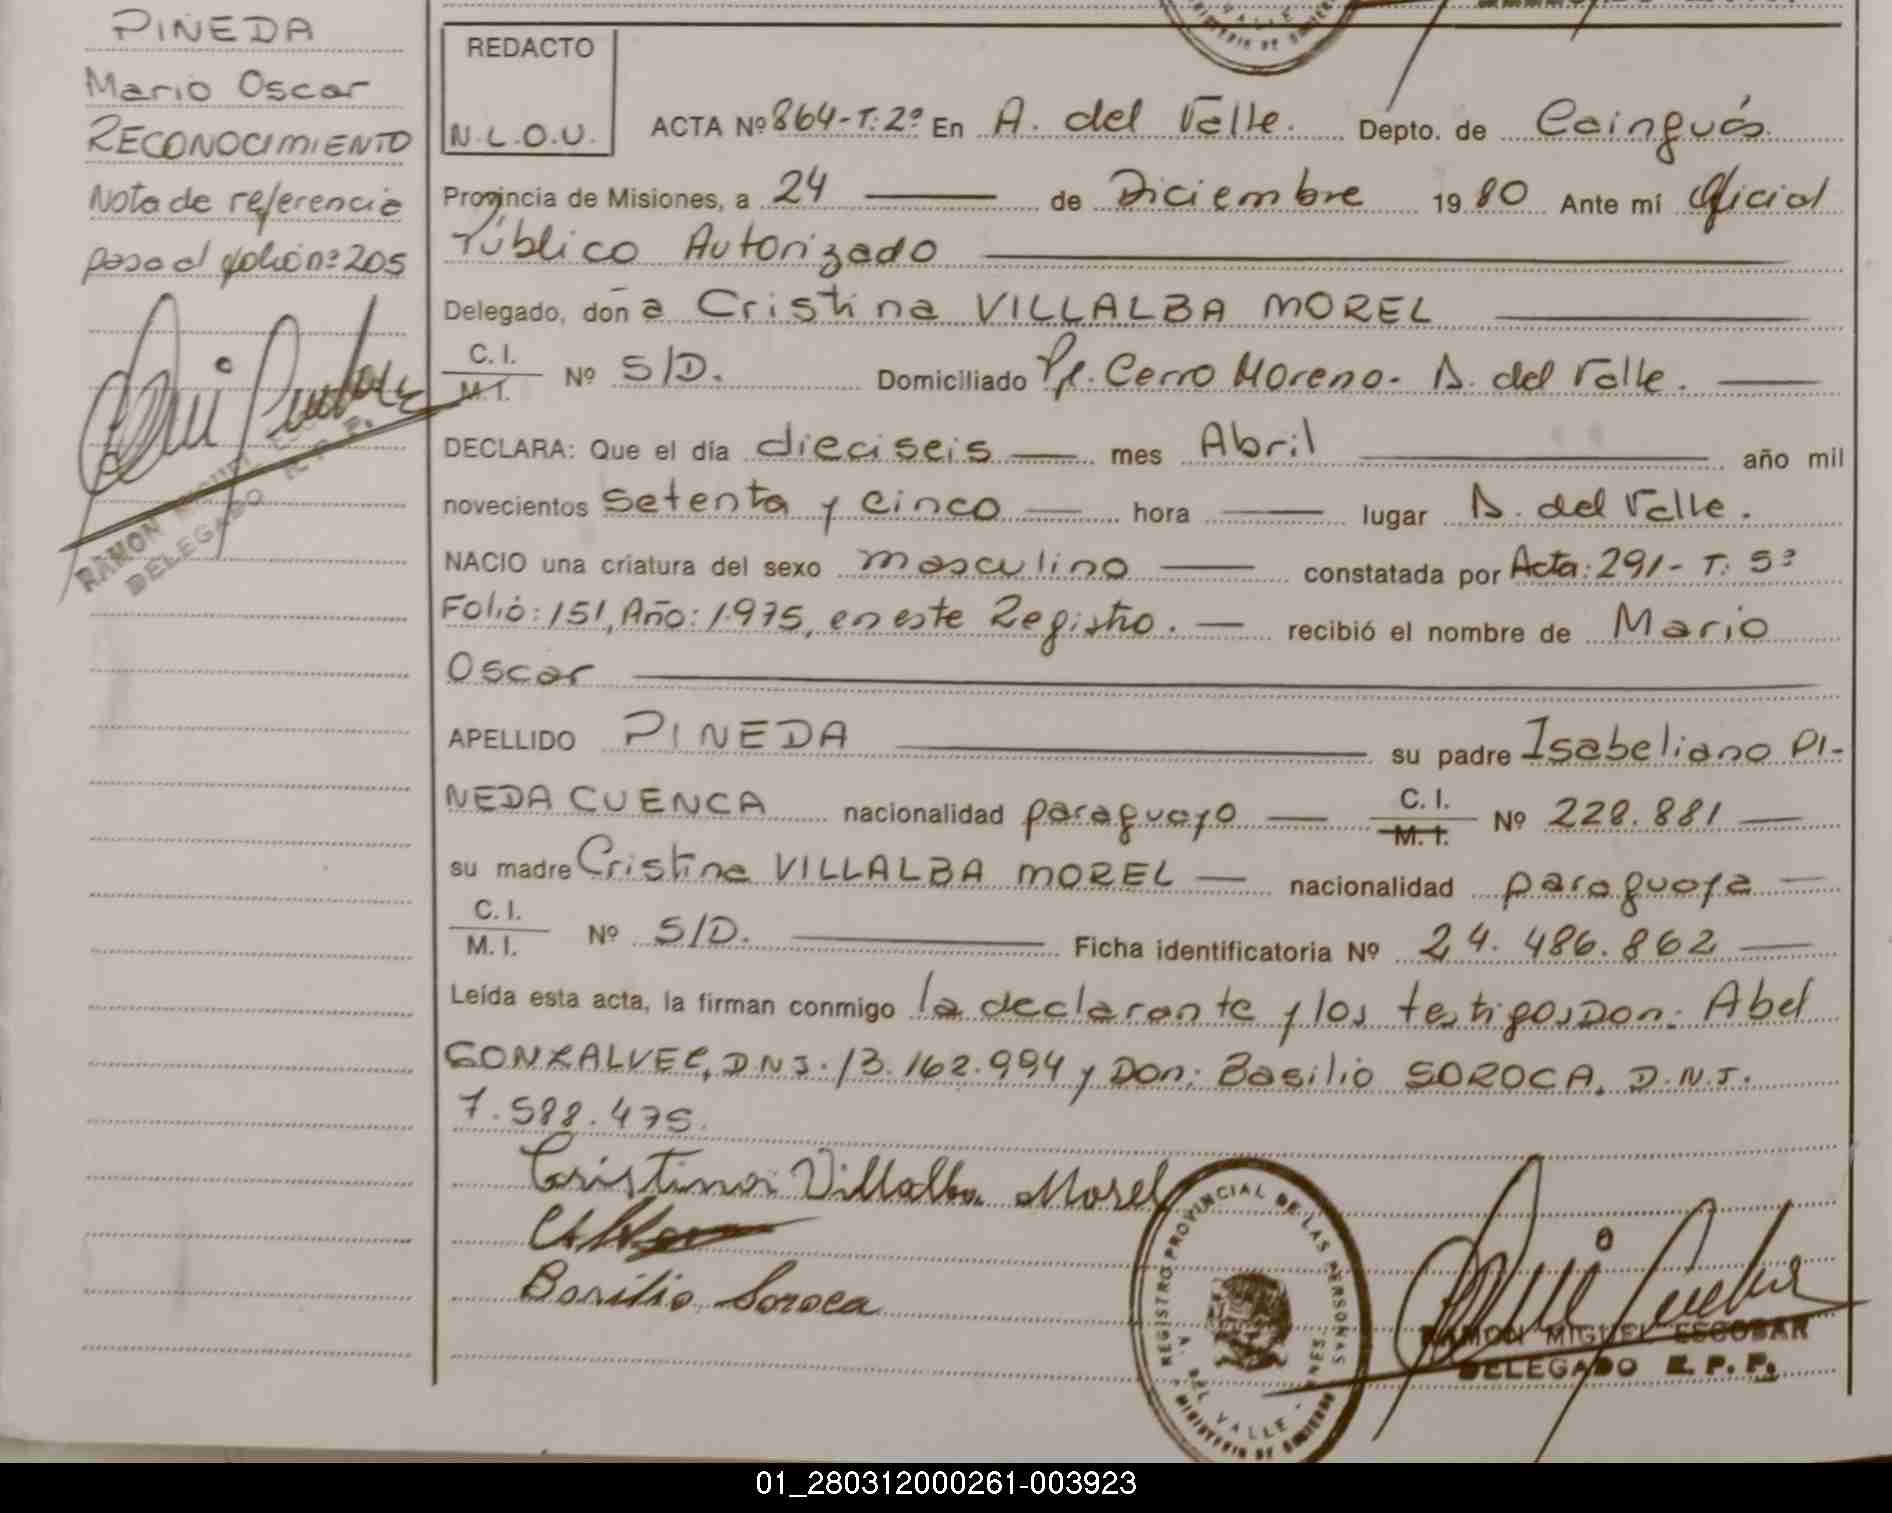 PINEDA
Mario Oscar
RECONOCIMIENTO
Nota de referencia
pasa al folio nº 205
RAMON MIGUEL
DELEGADO R. P. P.
REDACTO
N.L.O.U.
ACTA Nº 864-T:2º En A. del Valle. Depto. de Cainguás
Provincia de Misiones, a 24 de Diciembre 1980 Ante mí Oficial
Público Autorizado
Delegado, doña Cristina VILLALBA MOREL
C. I.
M. I.
Nº S/D. Domiciliado Pje. Cerro Moreno- A. del Valle.
DECLARA: Que el día dieciseis mes Abril año mil
novecientos setenta y cinco hora lugar A. del Valle.
NACIO una criatura del sexo masculino constatada por Acta: 291- T: 5º
Folio: 151, Año: 1.975, en este Registro. recibió el nombre de Mario
Oscar
APELLIDO PINEDA su padre Isabeliano PI-
NEDA CUENCA nacionalidad paraguayo C. I. M. I. Nº 228.881
su madre Cristina VILLALBA MOREL nacionalidad paraguaya
C. I.
M. I.
Nº S/D. Ficha identificatoria Nº 24.486.862
Leída esta acta, la firman conmigo la declarante y los testigos Don: Abel
GONZALVEZ, D.N.I. 13.162.994 y Don: Basilio SOROCA. D.N.I.
7.588.475.
Cristina Villalba Morel
Basilio Soroca
REGISTRO PROVINCIAL DE LAS PERSONAS
A. DEL VALLE - MNES.
MINISTERIO DE GOBIERNO
RAMON MIGUEL ESCOBAR
DELEGADO R. P. P.
01_280312000261-003923